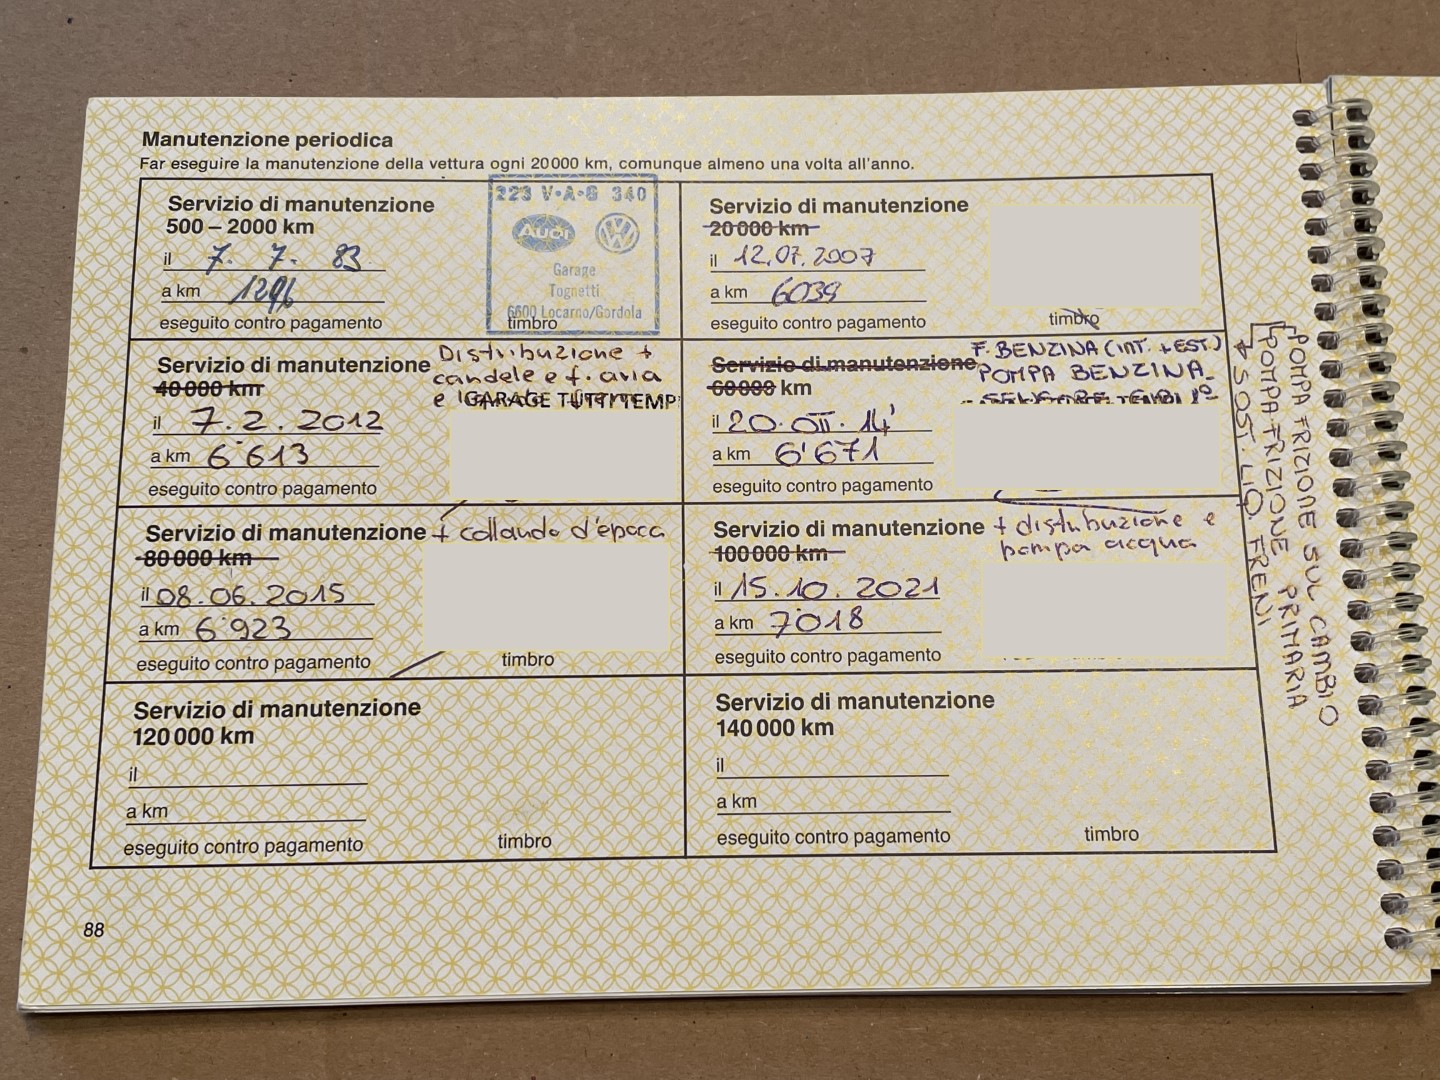 Manutenzione periodica
Far eseguire la manutenzione della vettura ogni 20 000 km, comunque almeno una volta all'anno.
Servizio di manutenzione
500 – 2000 km
il 7. 7. 83
a km
eseguito contro pagamento
timbro
223 V·A·G 340
Audi
Garage
Tognetti
6600 Locarno/Gordola
Servizio di manutenzione
20 000 km
il 12.07.2007
a km 6039
eseguito contro pagamento
timbro
Servizio di manutenzione
40 000 km
il 7.2.2012
a km 6'613
eseguito contro pagamento
Distribuzione +
candele e f. aria
e
GARAGE TUTTITEMP
Servizio di manutenzione
60 000 km
il 20.07.14'
a km 6'671
eseguito contro pagamento
F. BENZINA (INT. + EST.)
POMPA BENZINA
Servizio di manutenzione
80 000 km
il 08.06.2015
a km 6'923
eseguito contro pagamento
timbro
+ collaudo d'epoca
Servizio di manutenzione
100 000 km
il 15.10.2021
a km 7'018
eseguito contro pagamento
+ distribuzione e
pompa acqua
POMPA FRIZIONE SUL CAMBIO
POMPA FRIZIONE PRIMARIA
+ SOST. LIQ. FRENI
Servizio di manutenzione
120 000 km
il
a km
eseguito contro pagamento
timbro
Servizio di manutenzione
140 000 km
il
a km
eseguito contro pagamento
timbro
88